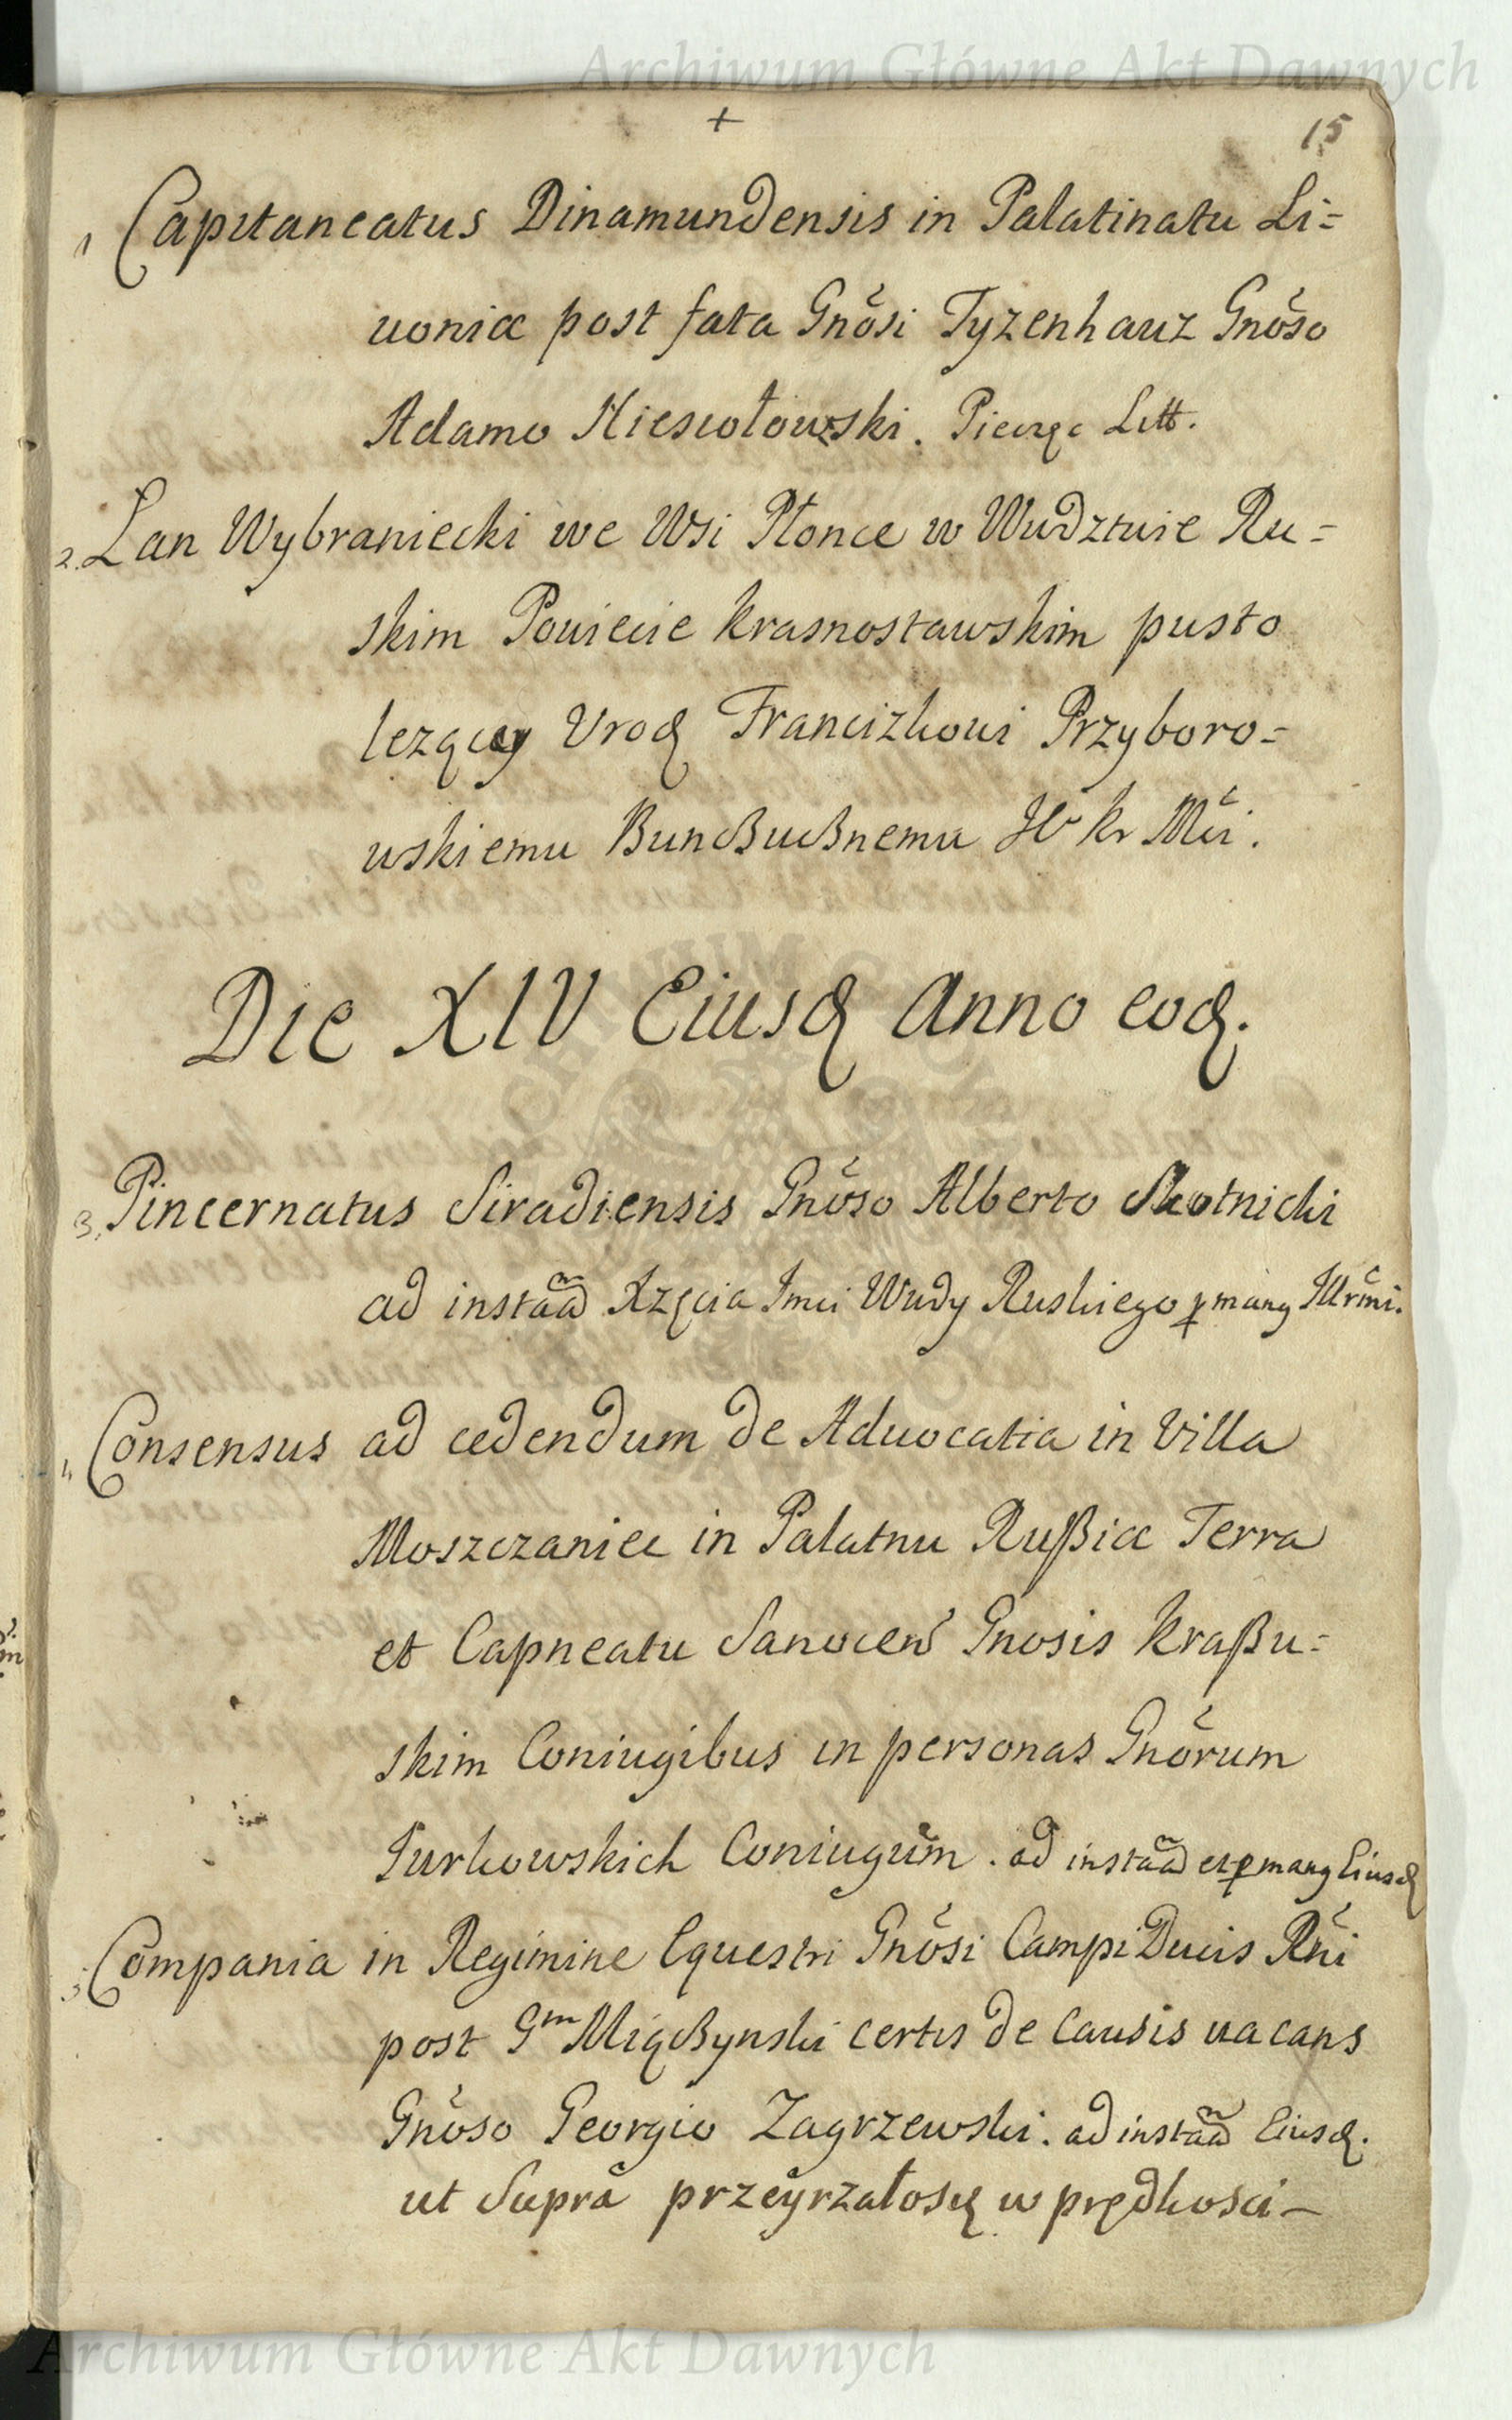 Archiwum Główne Akt Dawnych
+
15
1 Capitaneatus Dinamundensis in Palatinatu Li=
uoniæ post fata Gnosi Tyzenhauz Gnoso
Adamo Niesiołowski. Pieczęc Litt.
2. Łan Wybraniecki we Wsi Płonce w Wudztwie Ru=
skim Powiecie Krasnostawskim pusto
lezący Urod Franciszkowi Przyboro=
wskiemu Bunczucznemu JKr Mci.
Die XIV Eiusd Anno eod.
3. Pincernatus Siradiensis Gnoso Alberto Skotnicki
ad instaad Xzęcia Jmci Wudy Ruskiego p mang
4. Consensus ad cedendum de Aduocatia in Villa
Moszczaniec in Palatnu Rußiæ Terra
et Capneatu Sanocen Gnosis Kraßu=
skim Coniugibus in personas Gnorum
Turkowskich Coniugum. ad instaad et p mang Eiusd
5. Compania in Regimine Equestri Gnosi Campi Ducis Rni
post Gm Miączynski certis de Causis uacans
Gnoso Georgio Zagrzewski. ad instaad Eiusd.
ut Supra przeyrzałosię w prędkosci –
Archiwum Główne Akt Dawnych